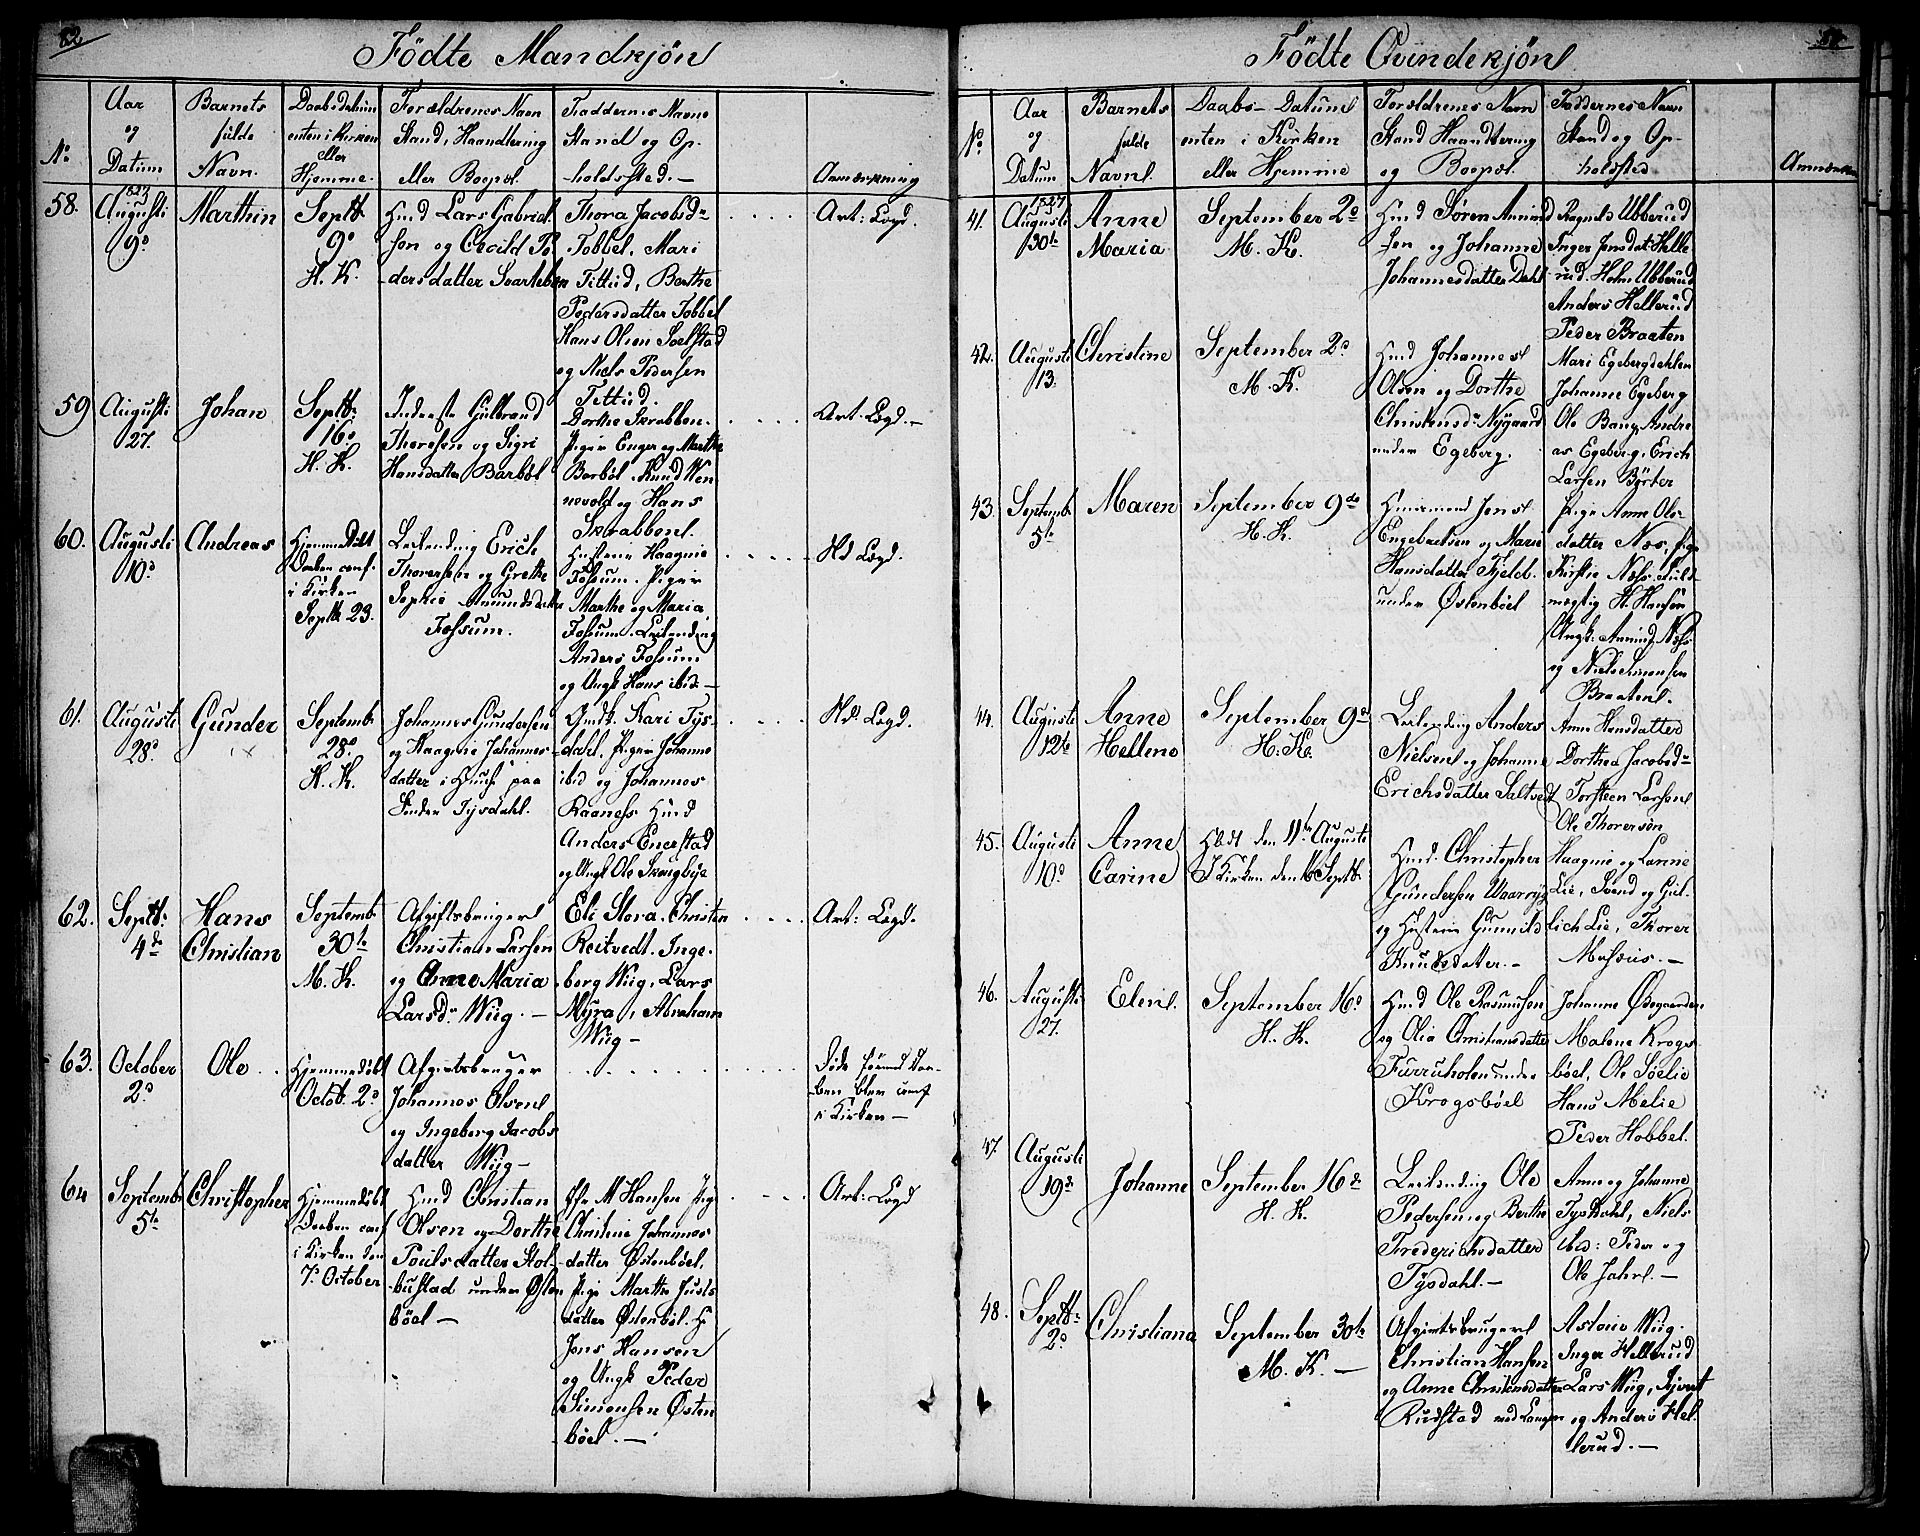 82
Födte Mandkjön
No
Aar
og
Datum
Barnets
fulde
Navn.
Daabsdatum
enten i Kirken
eller
Hjemme.
Forældrenes Navn
Stand, Haandtering
eller Boepæl.
Faddernes Navne
Stand og Op-
holdssted. —
Anmærkning
58.
1827
Augusti
9de
Marthin
Septbr
9de
H. K.
Huusmd Lars Gabriel-
sen og Cecild Pe-
dersdatter Svarteberg
Thora Jacobsdr
Tobbel. Mari
Tittud, Berthe
Pedersdatter Tobbel
Hans Olsen Soelstad
og Niels Pedersen
Tittud.
Art: Lægd.
59
Augusti
27.
Johan
Septbr:
16de
H. K.
Inderste Gulbrand
Thoresen og Sigri
Hansdatter Barböl
Dorthe Skrabben.
Piger Enger og Marthe
Barböl. Knud Wen
nevold og Hans
Skrabben.
Art. Lægd. —
60.
Augusti
10de
Andreas
Hjemmedöbt
Daaben conf.
i Kirken
Septbr 23.
Leilending Erich
Thoresen og Grethe
Sophie Amundsdatter
Fossum.
Husterne Haagine
Fossum. Piger
Marthe og Maria
Fossum. Leilending
Anders Fossum
og Ungk Hans ibid. —
Nd Lægd.
61.
Augusti
28de
Gunder
Septembr
28de
H. K.
Johannes Gundersen
og Haagine Johannes-
datter i Huus paa
Sender Tysdahl.
Gmdk. Kari Tys-
dahl. Piger Johanne
ibid og Johannes
Raaness Huusmd
Anders Enerstad
og Ungk Ole Skougbye
Nd: Lægd.
62.
Septbr:
4de
Hans
Christian
Septembr
30te
M. K.
Afgiftsbruger
Christian Larsen
og Anne Maria
Larsdr Wiig. —
Eli Stora. Christen
Reitvedt. Inge-
borg Wiig, Lars
Myra, Abraham
Wiig —
Art: Lægd.
63.
October
2de
Ole
Hjemmedöbt
Octob. 2de
Afgiftsbruger
Johannes Olsen
og Ingeborg Jacobs
datter Wiig —
Döde förend Daa-
ben blev conf
i Kirken —
64
Septembr
5te
Christopher
Hjemmedöbt
Daaben conf
i Kirken den
7de October
Huusmd Christian
Olsen og Dorthe
Poulsdatter Stol-
bustad under Östen
böel —
M Hansen Pige
Christine Johannes
datter Östenböel,
Pige Marthe Juuls
datter Östenböl. H
Jens Hansen
og Ungk Peder
Simensen Östen
böel. —
Art: Lægd
Födte Qvindekjön
No.
Aar
og
Datum
Barnets
fulde
Navn.
Daabs-Datum
enten i Kirken
eller Hjemme
Forældrenes Navn
Stand Haandtering
og Boepæl.
Faddernes Navn
Stand og Op-
holdsted
41.
1827
Augusti
30te
Anne
Maria
September 2de
M. K.
Huusmd Sören Amund
sen og Johanne
Johannesdatter Dahl
Ragnild Ubberud
Inger Jensdat: Helle
rud. Holm Ubberud
Anders Hellerud
Peder Braaten
42.
Augusti
13.
Christine
September 2de
M. K.
Huusmd Johannes
Olsen og Dorthe
Christensdr Nygaard
under Egeberg.
Mari Egebergdahlen
Johanne Egeberg
Ole Bang, Andre
as Egeberg, Erich
Larsen Börter
43.
Septembr
5te
Maren
September 9de
H. K.
Huusmand Jens
Engebretsen og Marie
Hansdatter Fjeld.
under Östenböel
Pige Anne Ols-
datter Næs, Pige
Kirstie Næss. Fuld-
mægtig H. Hansen
Ungk: Amund Næss
og Niels Simensen
Braaten.
44.
Augusti
12te
Anne
Hellene
September 9de
H. K.
Leilending Anders
Nielsen og Johanne
Erichsdatter Saltvedt
Anne Hansdatter
Dorthea Jacobsdr
Torsteen Larsen
Ole Thoresön
45.
Augusti
10de
Anne
Carine
Hdöbt den 11te Augusti
I Kirken den 16 Septbr.
Huusmd. Christopher
Gundersen
og Husterne Gunnild
Knudsdater. —
Haagine og Lanne
Lie, Svend og Gul-
lich Lie, Thorer
46.
Augusti
27.
Elen.
September 16de
H. K.
Huusmd Ole Rasmusen
og Olia Christiansdatter
Furruholen under
Krogsböel
Johanne Ödegaarden
Malene Krogs
böel, Ole Söelie
Hans Melie
Peder Hobbel.
47.
Augusti
19de
Johanne
September 16de
H. K.
Leilending Ole
Pedersen og Berthe
Frederichsdatter
Tysdahl. —
Anne og Johanne
Tysdahl, Niels
ibid: Peder og
Ole Jahr. —
48.
Septbr:
2de
Christiana
September 30te
M. K. —
Afgiftsbruger
Christian Hansen
og Anne Christensdatter
Rudstad
Astorie Wiig.
Inger Hellerud
Lars Wiig, Syvert
og Anders Hel
lerud. —